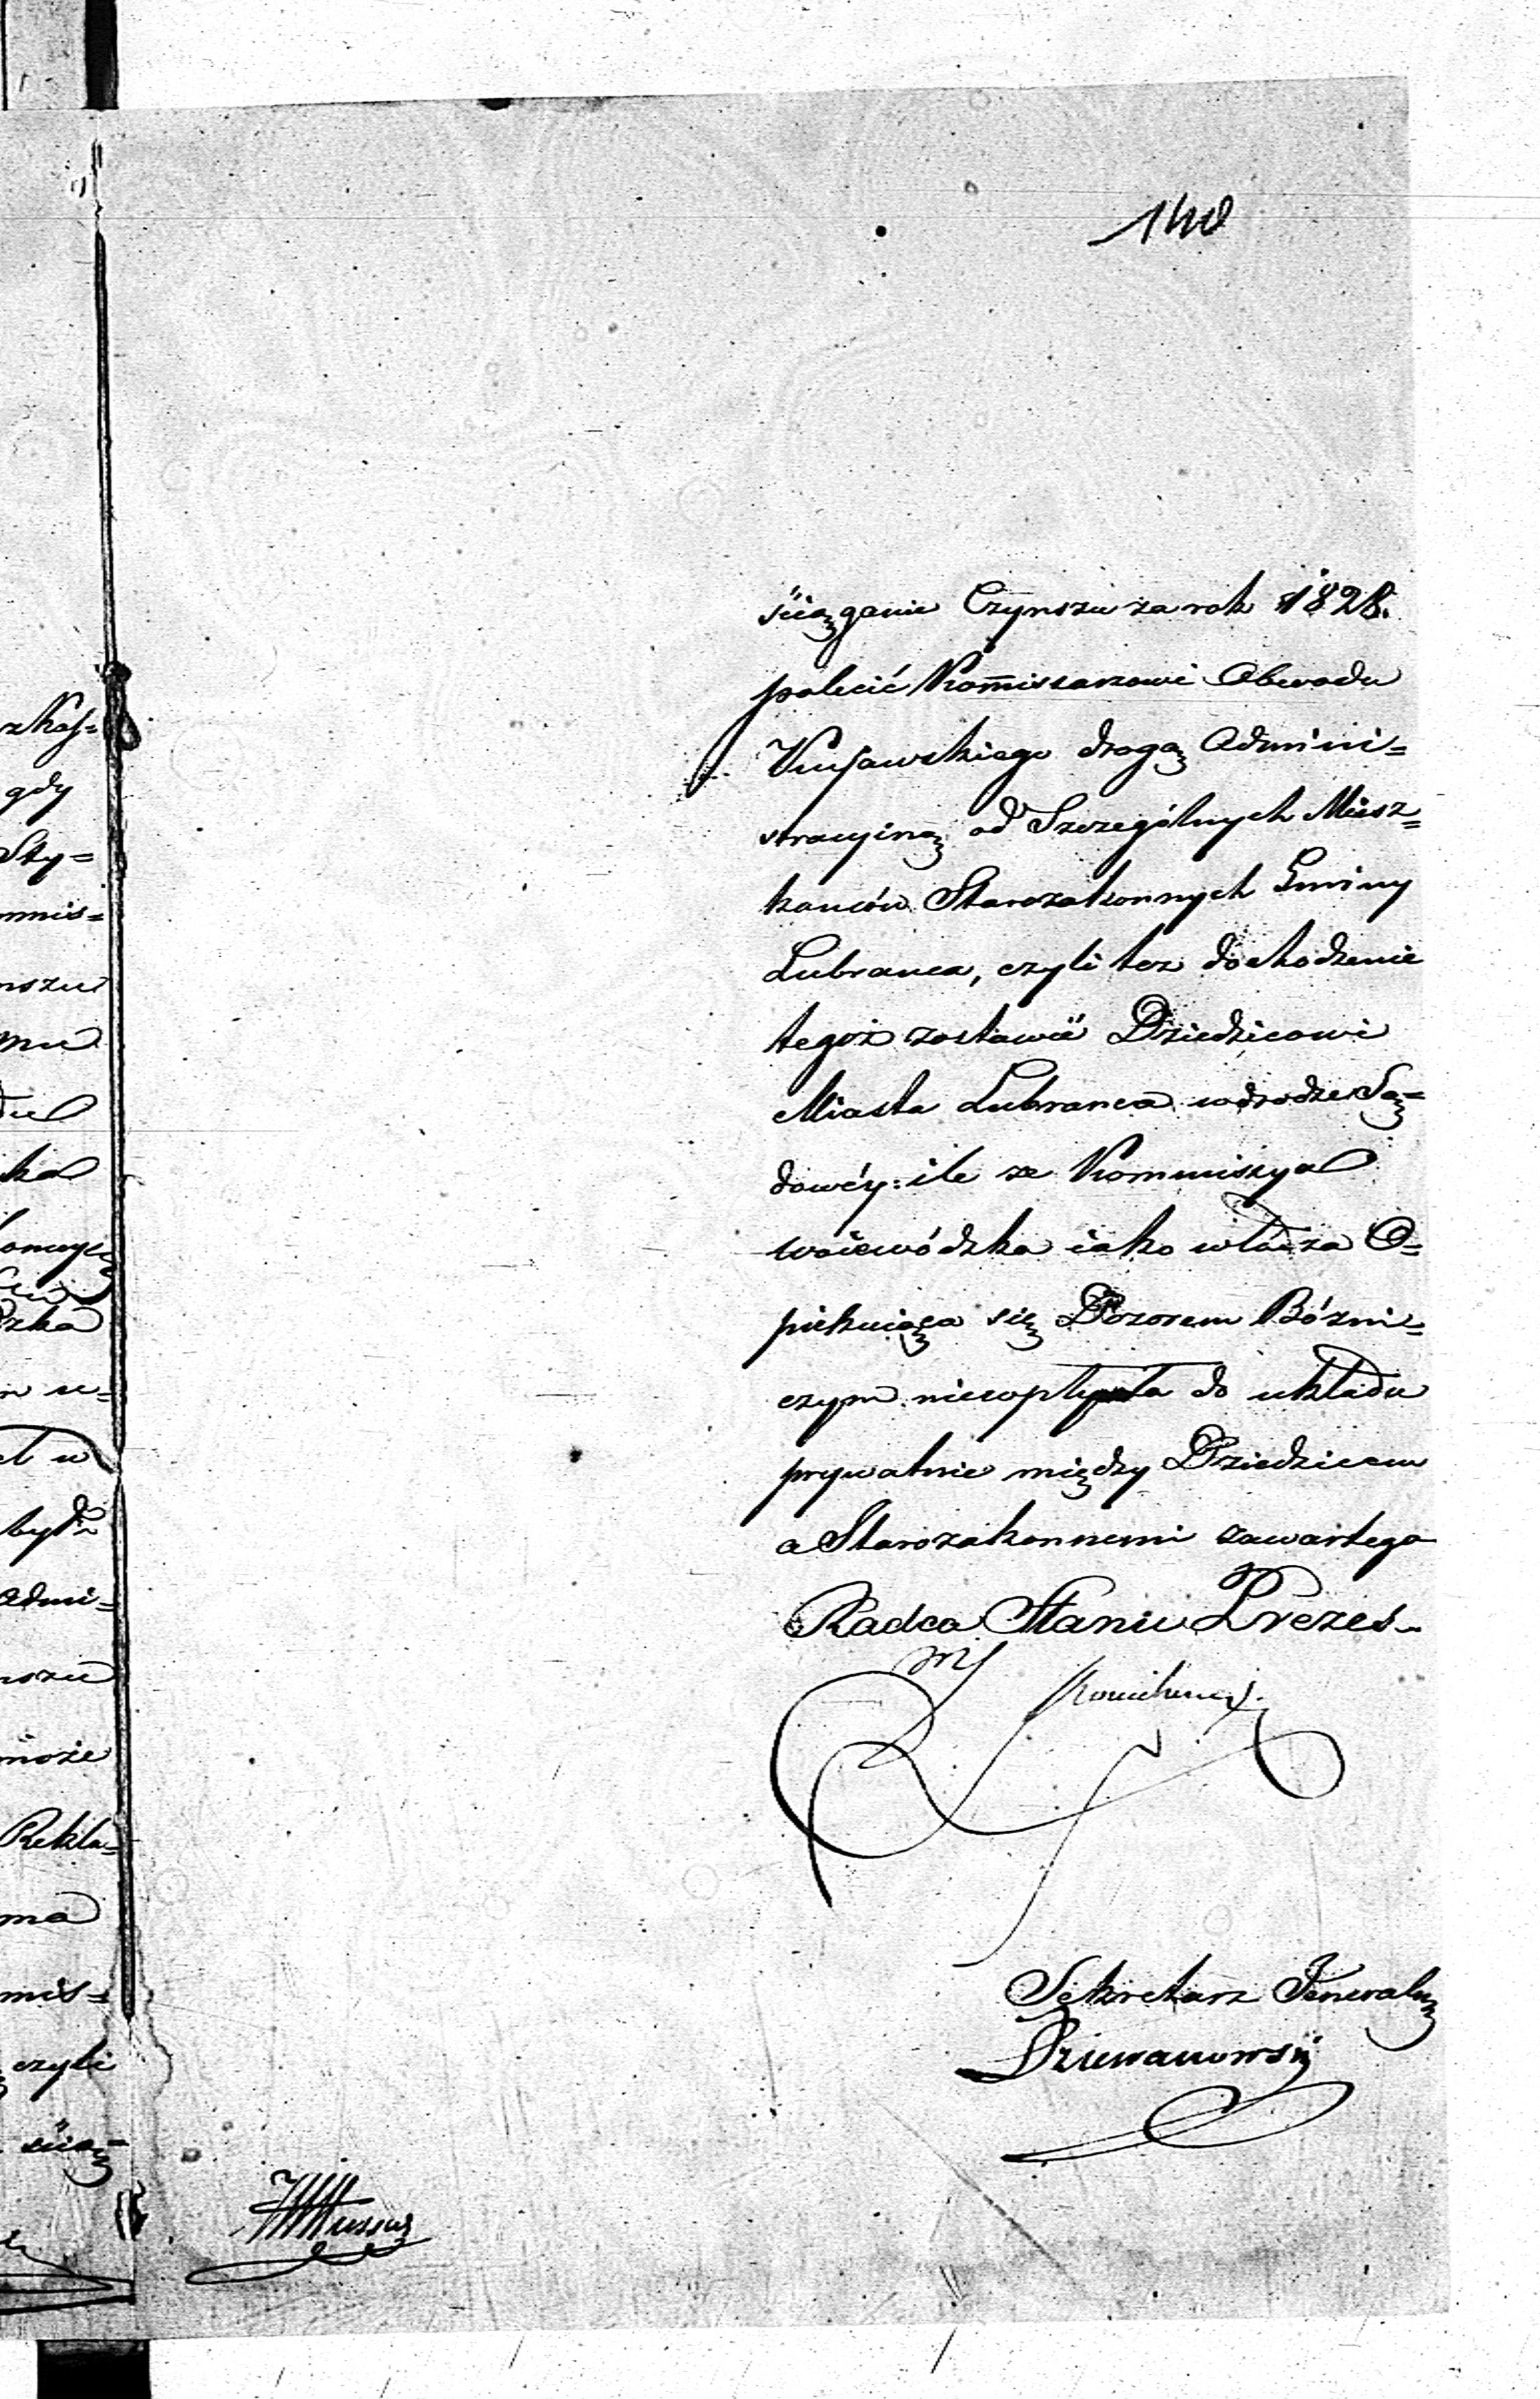 140
ściąganie Czynszu za rok 1828.
polecić Kom̄issarzowi Obwodu
Kujawskiego drogą Admini=
stracyiną od Szczególnych Miesz=
kańców Starozakonnych Gminy
Lubrańca, czyli też dochodzenie
tegoż zostawić Dziedzicowi
Miasta Lubrańca w drodze Są=
dowéy: ile że Kommissya
woiewódzka iako władza O=
piekuiąca się Dozorem Bóżni=
czym niewpłynęła do układu
prywatnie między Dziedzicem
a Starozakonnemi zawartego
Radca Stanu Prezes
Sekretarz Jeneralny
Dziewanowski
zkaſ=
gdy
Sty=
mmis=
nszu
mu
du
ka
zka
n u=
t w
być
Admi=
nszu
może
Rekla=
ma
mis=
czyli
ścią=